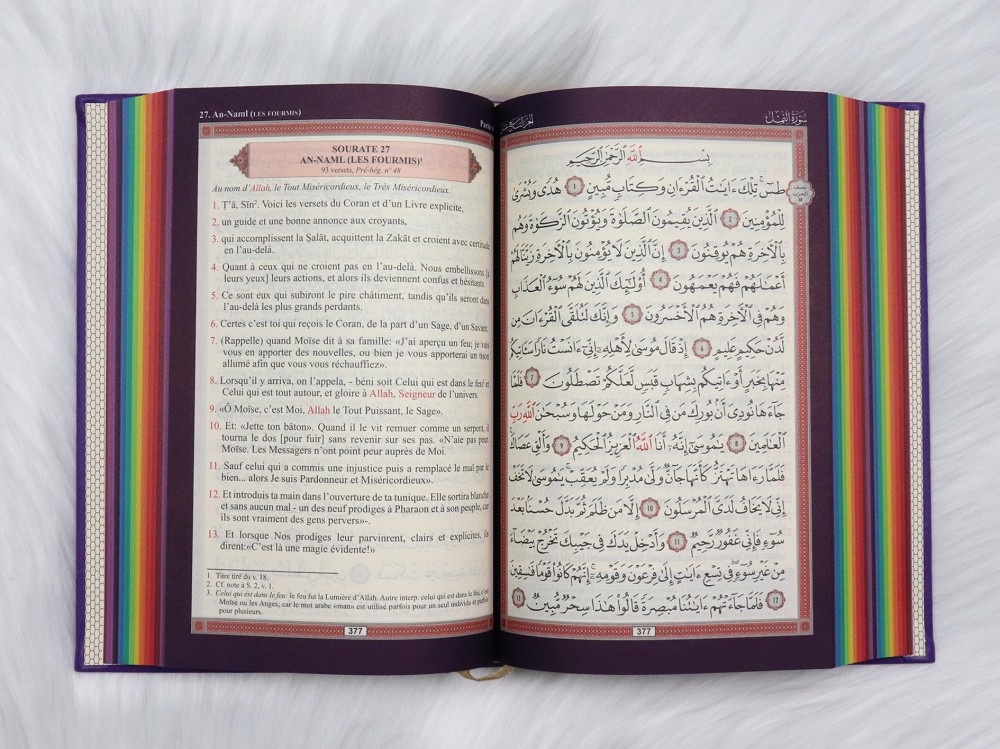 27. An-Naml (LES FOURMIS)
SOURATE 27
AN-NAML (LES FOURMIS)¹
93 versets, Pré-hég. n° 48
Au nom d'Allah, le Tout Miséricordieux, le Très Miséricordieux.
1. Ṭ'ā, Sīn². Voici les versets du Coran et d'un Livre explicite,
2. un guide et une bonne annonce aux croyants,
3. qui accomplissent la Ṣalāt, acquittent la Zakāt et croient avec certitude
en l'au-delà.
4. Quant à ceux qui ne croient pas en l'au-delà. Nous embellissons [à
leurs yeux] leurs actions, et alors ils deviennent confus et hésitants.
5. Ce sont eux qui subiront le pire châtiment, tandis qu'ils seront dans
l'au-delà les plus grands perdants.
6. Certes c'est toi qui reçois le Coran, de la part d'un Sage, d'un Savant.
7. (Rappelle) quand Moïse dit à sa famille: «J'ai aperçu un feu; je vais
vous en apporter des nouvelles, ou bien je vous apporterai un tison
allumé afin que vous vous réchauffiez».
8. Lorsqu'il y arriva, on l'appela, - béni soit Celui qui est dans le feu³ et
Celui qui est tout autour, et gloire à Allah, Seigneur de l'univers.
9. «Ô Moïse, c'est Moi, Allah le Tout Puissant, le Sage».
10. Et: «Jette ton bâton». Quand il le vit remuer comme un serpent, il
tourna le dos [pour fuir] sans revenir sur ses pas. «N'aie pas peur
Moïse. Les Messagers n'ont point peur auprès de Moi.
11. Sauf celui qui a commis une injustice puis a remplacé le mal par le
bien... alors Je suis Pardonneur et Miséricordieux».
12. Et introduis ta main dans l'ouverture de ta tunique. Elle sortira blanche
et sans aucun mal - un des neuf prodiges à Pharaon et à son peuple, car
ils sont vraiment des gens pervers»-.
13. Et lorsque Nos prodiges leur parvinrent, clairs et explicites, ils
dirent:«C'est là une magie évidente!»
1. Titre tiré du v. 18.
2. Cf. note à S. 2, v. 1.
3. Celui qui est dans le feu: le feu fut la Lumière d'Allah. Autre interp. celui qui est dans le feu, c'est
Moïse ou les Anges; car le mot arabe «man» est utilisé parfois pour un seul individu et parfois
pour plusieurs.
377
سورة النمل
بِسْمِ اللَّهِ الرَّحْمَٰنِ الرَّحِيمِ
طسٓ ۚ تِلْكَ ءَايَٰتُ الْقُرْءَانِ وَكِتَابٍ مُّبِينٍ ١ هُدًى وَبُشْرَىٰ
لِلْمُؤْمِنِينَ ٢ الَّذِينَ يُقِيمُونَ الصَّلَوٰةَ وَيُؤْتُونَ الزَّكَوٰةَ وَهُم
بِالْءَاخِرَةِ هُمْ يُوقِنُونَ ٣ إِنَّ الَّذِينَ لَا يُؤْمِنُونَ بِالْءَاخِرَةِ زَيَّنَّا لَهُمْ
أَعْمَٰلَهُمْ فَهُمْ يَعْمَهُونَ ٤ أُو۟لَٰٓئِكَ الَّذِينَ لَهُمْ سُوٓءُ الْعَذَابِ
وَهُمْ فِي الْءَاخِرَةِ هُمُ الْأَخْسَرُونَ ٥ وَإِنَّكَ لَتُلَقَّى الْقُرْءَانَ مِن
لَّدُنْ حَكِيمٍ عَلِيمٍ ٦ إِذْ قَالَ مُوسَىٰ لِأَهْلِهِۦٓ إِنِّيٓ ءَانَسْتُ نَارًا سَـَٔاتِيكُم
مِّنْهَا بِخَبَرٍ أَوْ ءَاتِيكُم بِشِهَابٍ قَبَسٍ لَّعَلَّكُمْ تَصْطَلُونَ ٧ فَلَمَّا
جَآءَهَا نُودِيَ أَنۢ بُورِكَ مَن فِي النَّارِ وَمَنْ حَوْلَهَا وَسُبْحَٰنَ اللَّهِ رَبِّ
الْعَٰلَمِينَ ٨ يَٰمُوسَىٰٓ إِنَّهُۥٓ أَنَا اللَّهُ الْعَزِيزُ الْحَكِيمُ ٩ وَأَلْقِ عَصَاكَ ۚ
فَلَمَّا رَءَاهَا تَهْتَزُّ كَأَنَّهَا جَآنٌّ وَلَّىٰ مُدْبِرًا وَلَمْ يُعَقِّبْ ۚ يَٰمُوسَىٰ لَا تَخَفْ
إِنِّي لَا يَخَافُ لَدَيَّ الْمُرْسَلُونَ ١٠ إِلَّا مَن ظَلَمَ ثُمَّ بَدَّلَ حُسْنًۢا بَعْدَ
سُوٓءٍ فَإِنِّي غَفُورٌ رَّحِيمٌ ١١ وَأَدْخِلْ يَدَكَ فِي جَيْبِكَ تَخْرُجْ بَيْضَآءَ
مِنْ غَيْرِ سُوٓءٍ ۖ فِي تِسْعِ ءَايَٰتٍ إِلَىٰ فِرْعَوْنَ وَقَوْمِهِۦٓ ۚ إِنَّهُمْ كَانُوا۟ قَوْمًا فَٰسِقِينَ
١٢ فَلَمَّا جَآءَتْهُمْ ءَايَٰتُنَا مُبْصِرَةً قَالُوا۟ هَٰذَا سِحْرٌ مُّبِينٌ ١٣
377